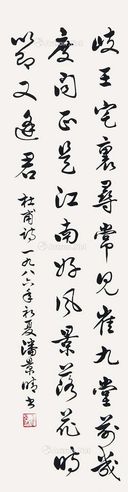 岐王宅裏尋常見崔九堂前幾
度聞正是江南好風景落花時
節又逢君 杜甫詩一九八六年初夏潘景晴書